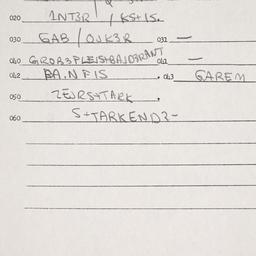 020 1NT3R / KS+1S.
030 GAB / OJK3R 031 —
040 GROA3PLEIS+BAJD3RANT 041 —
042 BA.NFIS . 043 GAREM
050 ZEJRS+TARK .
060 S+TARKEND2-